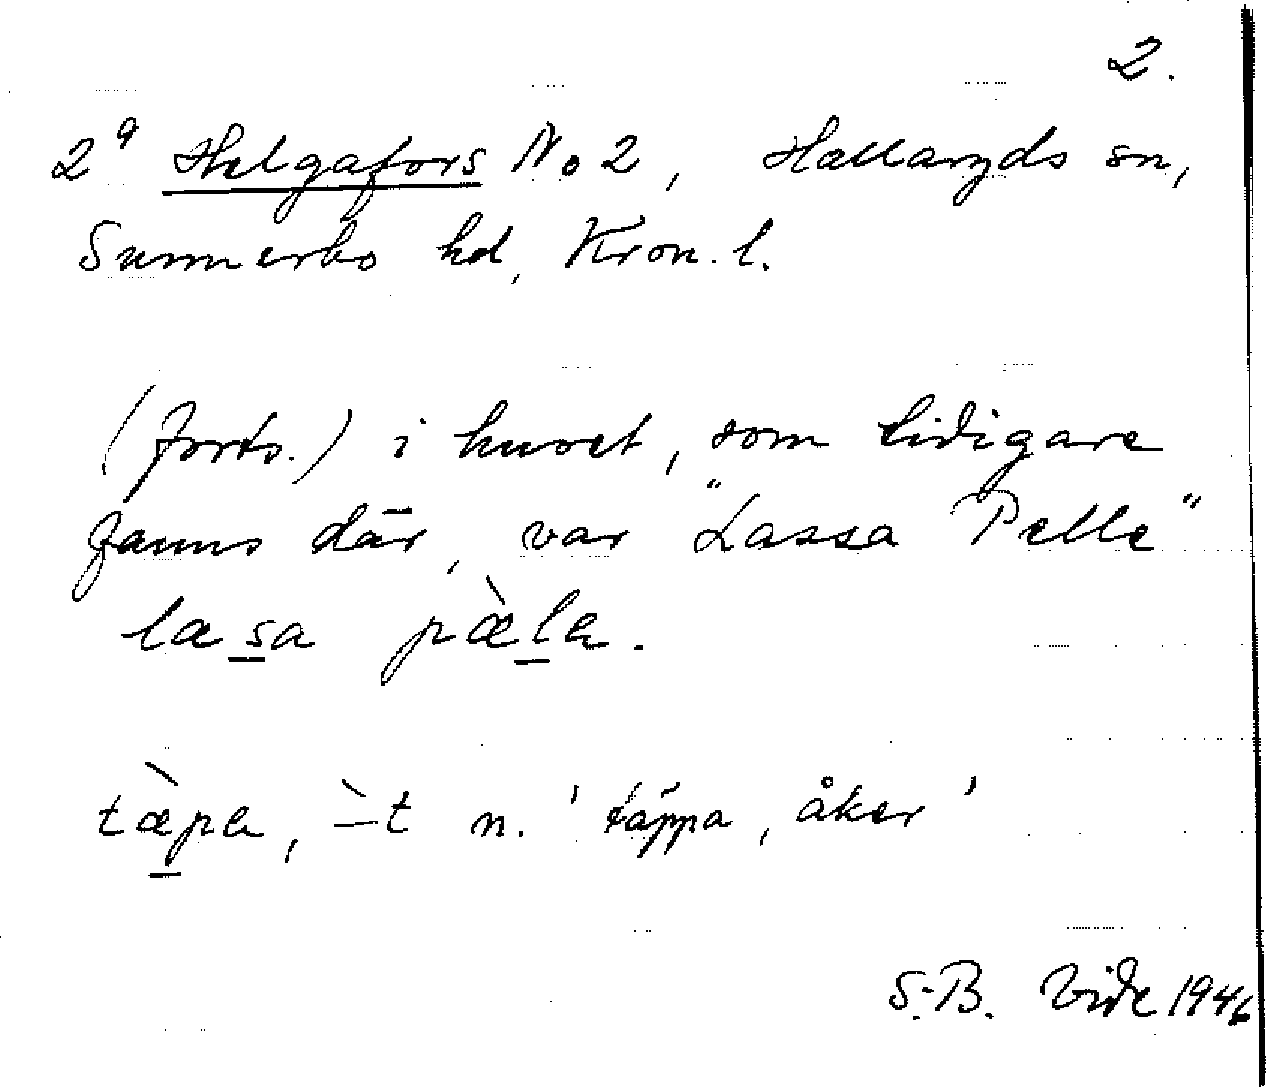 2.
2⁹ Helgafors No 2, Hallaryds sn,
Sunnerbo hd, Kron. l.
(forts.) i huset, som tidigare
fanns där, var "Lassa Pelle"
lasa pæ̀la.
tæ̀pa, -̀t n. 'täppa, åker'
S.-B. Vide 1946